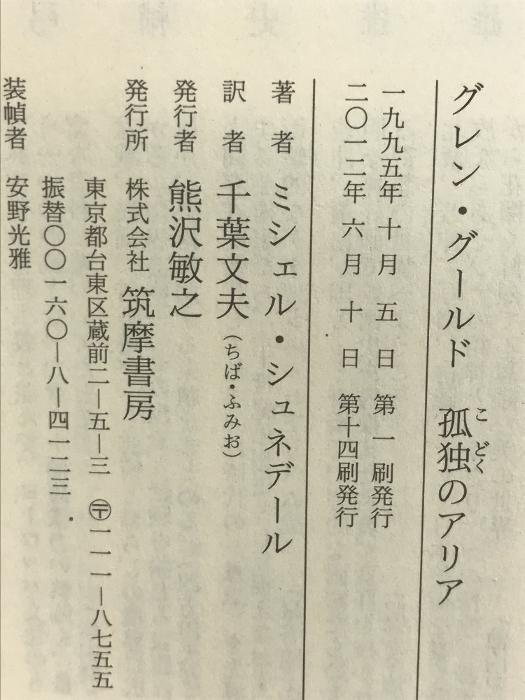 グレン・グールド 孤独のアリア
こどく
一九九五年 十月 五日 第一刷発行
二〇一二年 六月 十日 第十四刷発行
著者 ミシェル・シュネデール
訳者 千葉文夫（ちば・ふみお）
発行者 熊沢敏之
発行所 株式会社 筑摩書房
東京都台東区蔵前二―五―三 〶一一一―八七五五
振替〇〇一六〇―八―四一二三
装幀者 安野光雅